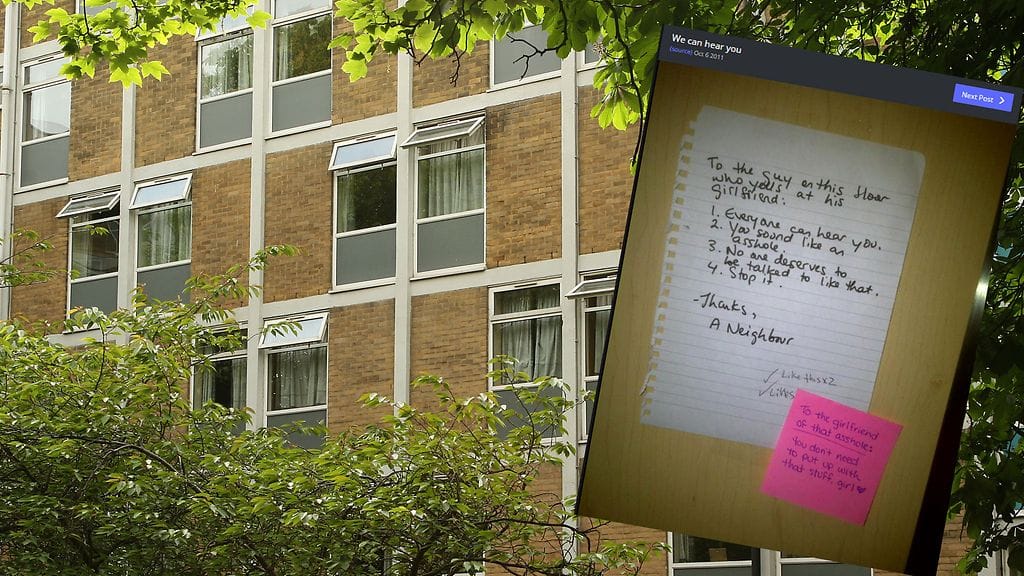 We can hear you
(source) Oct 6 2011
Next Post
To the guy on this floor
who yells at his
girlfriend:
1. Everyone can hear you.
2. You sound like an
asshole.
3. No one deserves to
be talked to like that.
4. Stop it.
-Thanks,
A Neighbour
Like this x2
Likes
To the girlfriend
of that asshole:
You don't need
to put up with
that stuff, girl